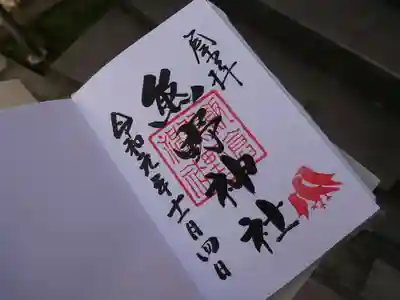 奉拝
熊野神社
令和元年十一月四日